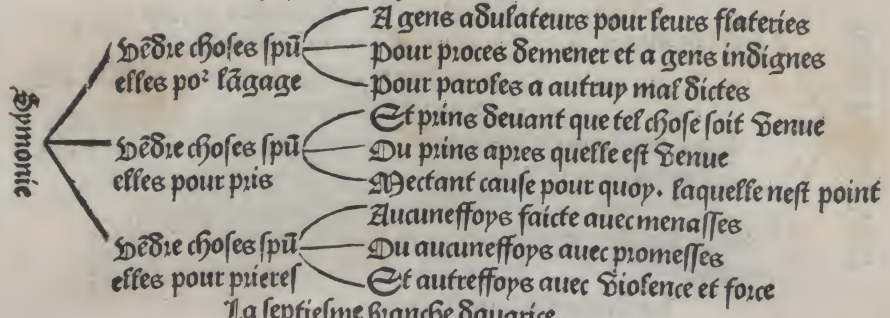 Symonie
Vēdre choses spū
elles poꝛ lāgage
A gens adulateurs pour leurs flateries
Pour proces demener et a gens indignes
Pour paroles a autruy mal dictes
Vēdre choses spū
elles pour pris
Et prins devant que tel chose soit venue
Ou prins apres quelle est venue
Mectant cause pour quoy. laquelle nest point
Vēdre choses spū
elles pour prieres
Aucuneffoys faicte avec menasses
Ou aucuneffoys avec promesses
Et autreffoys avec violence et force
La septiesme branche davarice